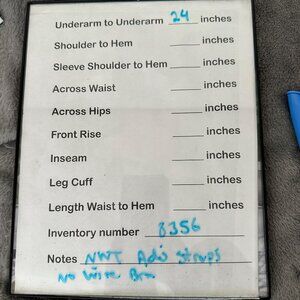 Underarm to Underarm 24 inches
Shoulder to Hem ____ inches
Sleeve Shoulder to Hem ____ inches
Across Waist ____ inches
Across Hips ____ inches
Front Rise ____ inches
Inseam ____ inches
Leg Cuff ____ inches
Length Waist to Hem ____ inches
Inventory number 8356
Notes NWT Adj Straps
No Wire Bra